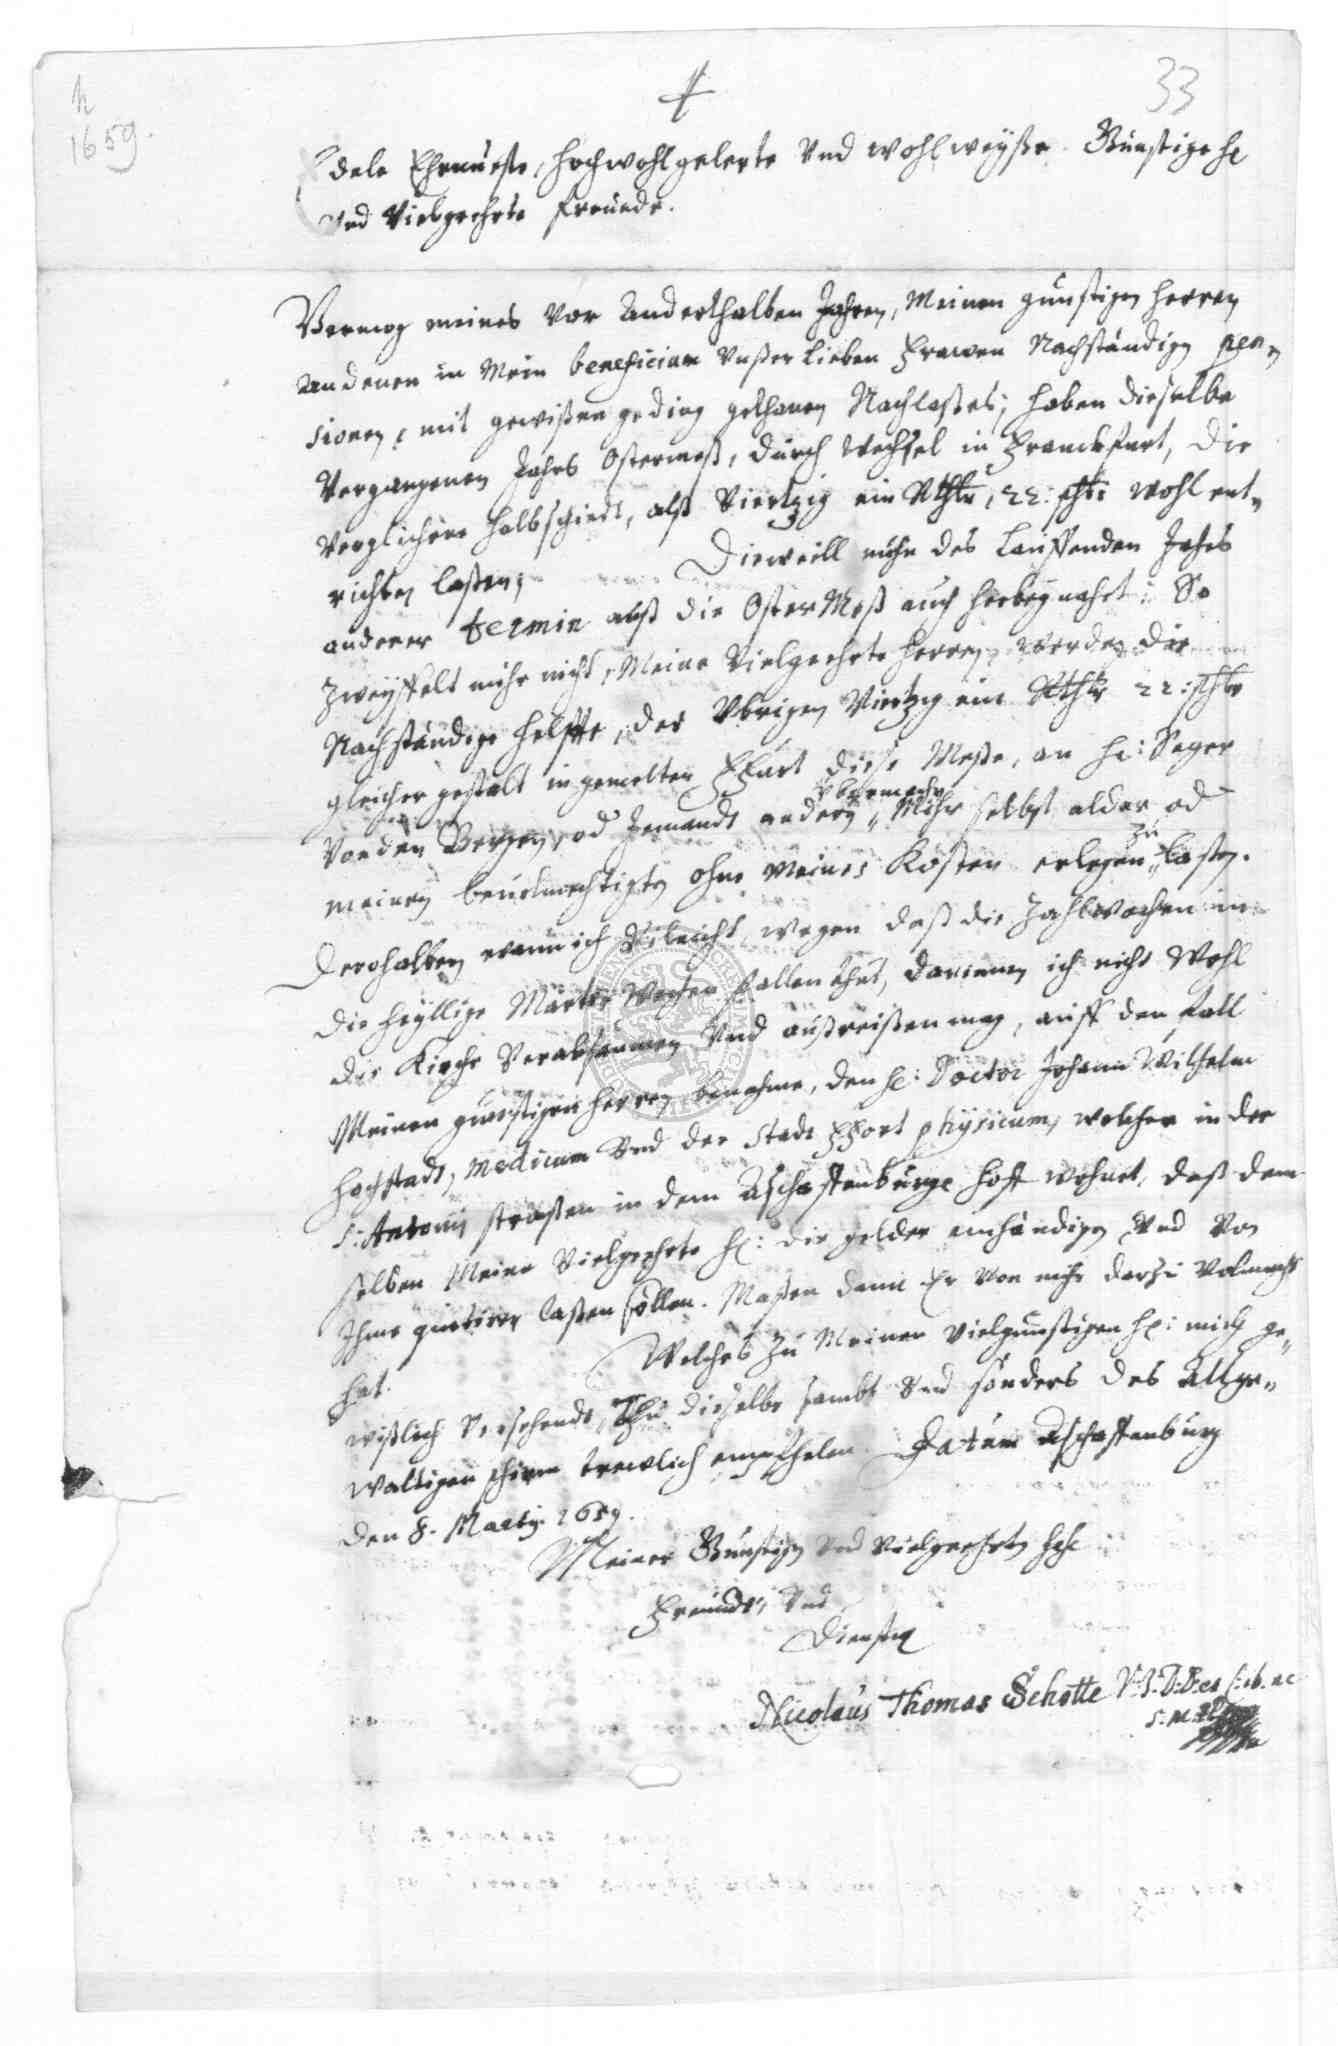 h
1659.
33
Edele Ehrnueste, Hochwohlgelerte Vnd Wohlweyße Günstige H
Vnd Vielgeehrte Freünde.
Vermog meines Vor Anderthalben Jahren, Meinen günstigen Herren
An denen in Mein beneficium Vnßer Lieben Frawen Nachständigen pen„
sionen, mit gewißen geding gethanen Nachlaßes; haben dieselbe
Vergangenen Jahrs Ostermeß, durch Wechsel in Franckfurt, die
Verglichene halbschiedt, alß Viertzig ein Rthlr, 22: ßhl: wohl ent„
richten laßen;
Dieweill nuhn des Lauffenden Jahrs
anderer termin alß die Oster Meß auch herbey nahet: So
Zweyffelt mihr nicht, Meine Vielgeehrte Herren, werden die
Nachständige helffte, der Vbrigen Viertzig ein Rthlr 22: ßhl
gleicher gestalt in gemelter FFurt diese Meße, an H: Seger
Von den Bergen, od Jemandt andern, Mihr selbst aldar od
Vbermachen
meinen bevolmechtigten ohne Meines Kosten erlegen zu laßen.
Derohalben wann ich Vileicht, wegen daß die Zahlwochen in
die heyllige Marter Wochen fallen thut, darinnen ich nicht Wohl
die Kirche Verabsaumen Vnd außreißen mag, auff den fall
Meinen gunstigen Herren benahme, den H: Doctor Johann Wilhelm
Hochstadt, Medicum Vnd der Stadt FFort physicum, welcher in der
S: Antonij straßen in dem Aschaffenburge Hoff wohnet, daß dem
selben Meine Vielgeehrte H: die gelder einhändigen Vnd Von
Ihme quitiren laßen wollen. Maßen dann Er Von mihr darzu Volmacht
hat.
Welches zu Meinen Vielgunstigen H: mich ge„
wißlich Versehendt, Thu dieselbe sambt Vnd sonders des Allge„
waltigen schirm trewlich empfehlen. Datum Aschaffenburg
den 8. Martij 1659.
Meiner Günstigen Vnd Vielgeehrten HH
Freundt, Vnd
Dienst
Nicolaus Thomas Schotte